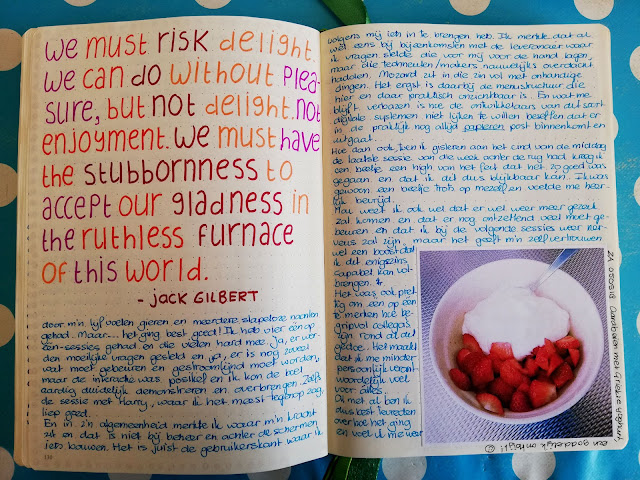 we must risk delight.
we can do without plea-
sure, but not delight. not
enjoyment. we must have
the stubbornness to
accept our gladness in
the ruthless furnace
of this world.
- Jack GILBERT
door m'n lijf voelen gieren en meerdere slapeloze nachten
gehad... Maar... het ging best goed! Ik heb vier één op
één-sessies gehad en die vielen hard mee. Ja, er wor-
den moeilijke vragen gesteld en ja, er is nog zoveel
wat moet gebeuren en gestroomlijnd moet worden,
maar de interactie was positief en ik kon de boel
aardig duidelijk demonstreren en overbrengen. Zelfs
de sessie met Harry, waar ik het meest tegenop zag,
liep goed.
En in z'n algemeenheid merkte ik waar m'n kracht
zit en dat is niet bij beheer en achter de schermen
iets bouwen. Het is juist de gebruikerskant waar ik
volgens mij iets in te brengen heb. Ik merkte dat al
wel eens bij bijeenkomsten met de leverancier waar
ik vragen stelde die voor mij voor de hand lagen,
maar die techneuten/makers nauwelijks overdacht
hadden. Mozard zit in die zin vol met onhandige
dingen. Het ergst is daarbij de menustructuur die
hier en daar praktisch onzichtbaar is. En wat me
blijft verbazen is hoe de ontwikkelaars van dit soort
digitale systemen niet lijken te willen beseffen dat er
in de praktijk nog altijd papieren post binnenkomt en
uitgaat.
Hoe dan ook, toen ik gisteren aan het eind van de middag
de laatste sessie van die week achter de rug had, kreeg ik
een beetje een high van het feit dat het zo goed was
gegaan en dat ik dit dus blijkbaar kan. Ik was
gewoon een beetje trots op mezelf en voelde me heer-
lijk bevrijd.
Nou weet ik ook wel dat er wel weer meer gezeik
zal komen en dat er nog ontzettend veel moet ge-
beuren en dat ik bij de volgende sessies weer ner-
veus zal zijn, maar het geeft m'n zelfvertrouwen
wel een boost dat
ik dit enigszins
capabel kan vol-
brengen.
Het was ook pret-
tig om één op één
te merken hoe be-
gripvol collega's
zijn rond al dit
gedoe. Het maakt
dat ik me minder
persoonlijk verant-
woordelijk voel
voor alles.
Al met al ben ik
dus best tevreden
over hoe het ging
en voel ik me weer
ZA 050518 Aardbeien met Griekse yoghurt,
een goddelijk ontbijt!